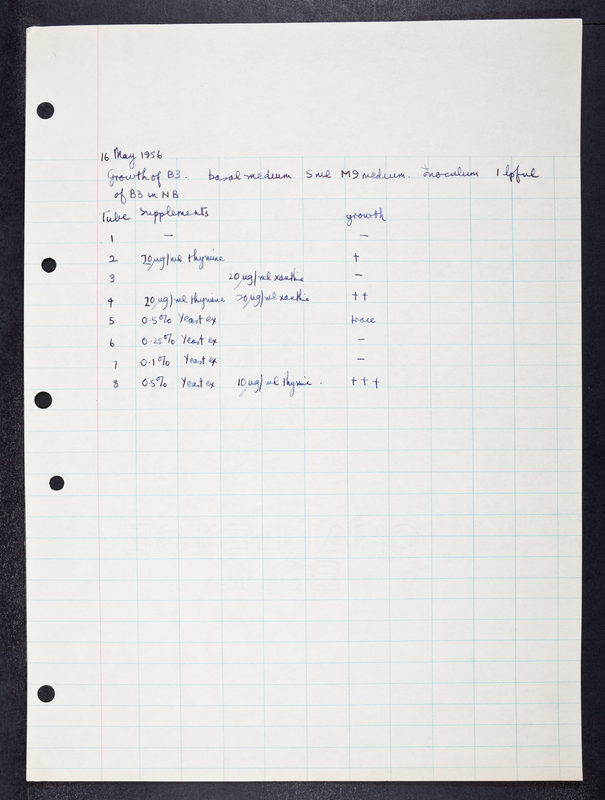 16 May 1956
Growth of B3. basal medium 5 ml M9 medium. Inoculum 1 lpful
of B3 in NB
Tube Supplements growth
1 — —
2 20 µg/ml thymine +
3 20 µg/ml xanthine —
4 20 µg/ml thymine 20 µg/ml xanthine ++
5 0.5% Yeast ex trace
6 0.25% Yeast ex —
7 0.1% Yeast ex —
8 0.5% Yeast ex 10 µg/ml thymine. +++